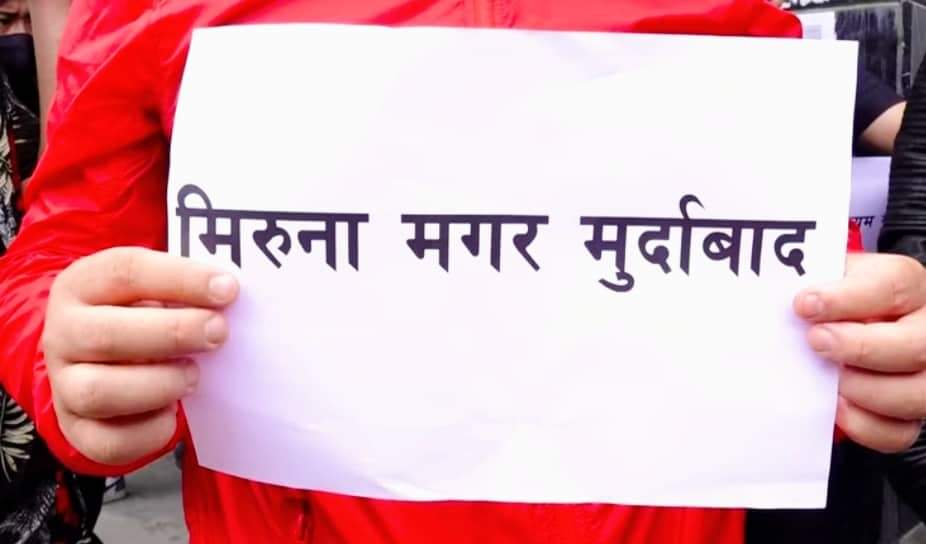 मिरुना मगर मुर्दाबाद